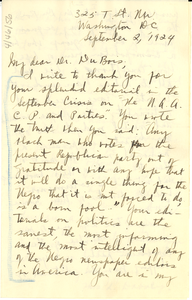 325 T St. NW
Washington DC
September 2, 1924
My dear Dr. Du Bois,
I write to thank you for
your splendid editorial in the
September Crisis on the N.A.A.
C.P. and Parties. You wrote
the truth when you said: Any
black man who votes for the
present Republican party out of
gratitude or with any hope that
it will do a single thing for the
Negro that it is not forced to do
is a born fool. Your edi-
torials on politics are the
sanest, the most informing
and the most intelligent of any
of the Negro newspaper editors
in America. You are in my